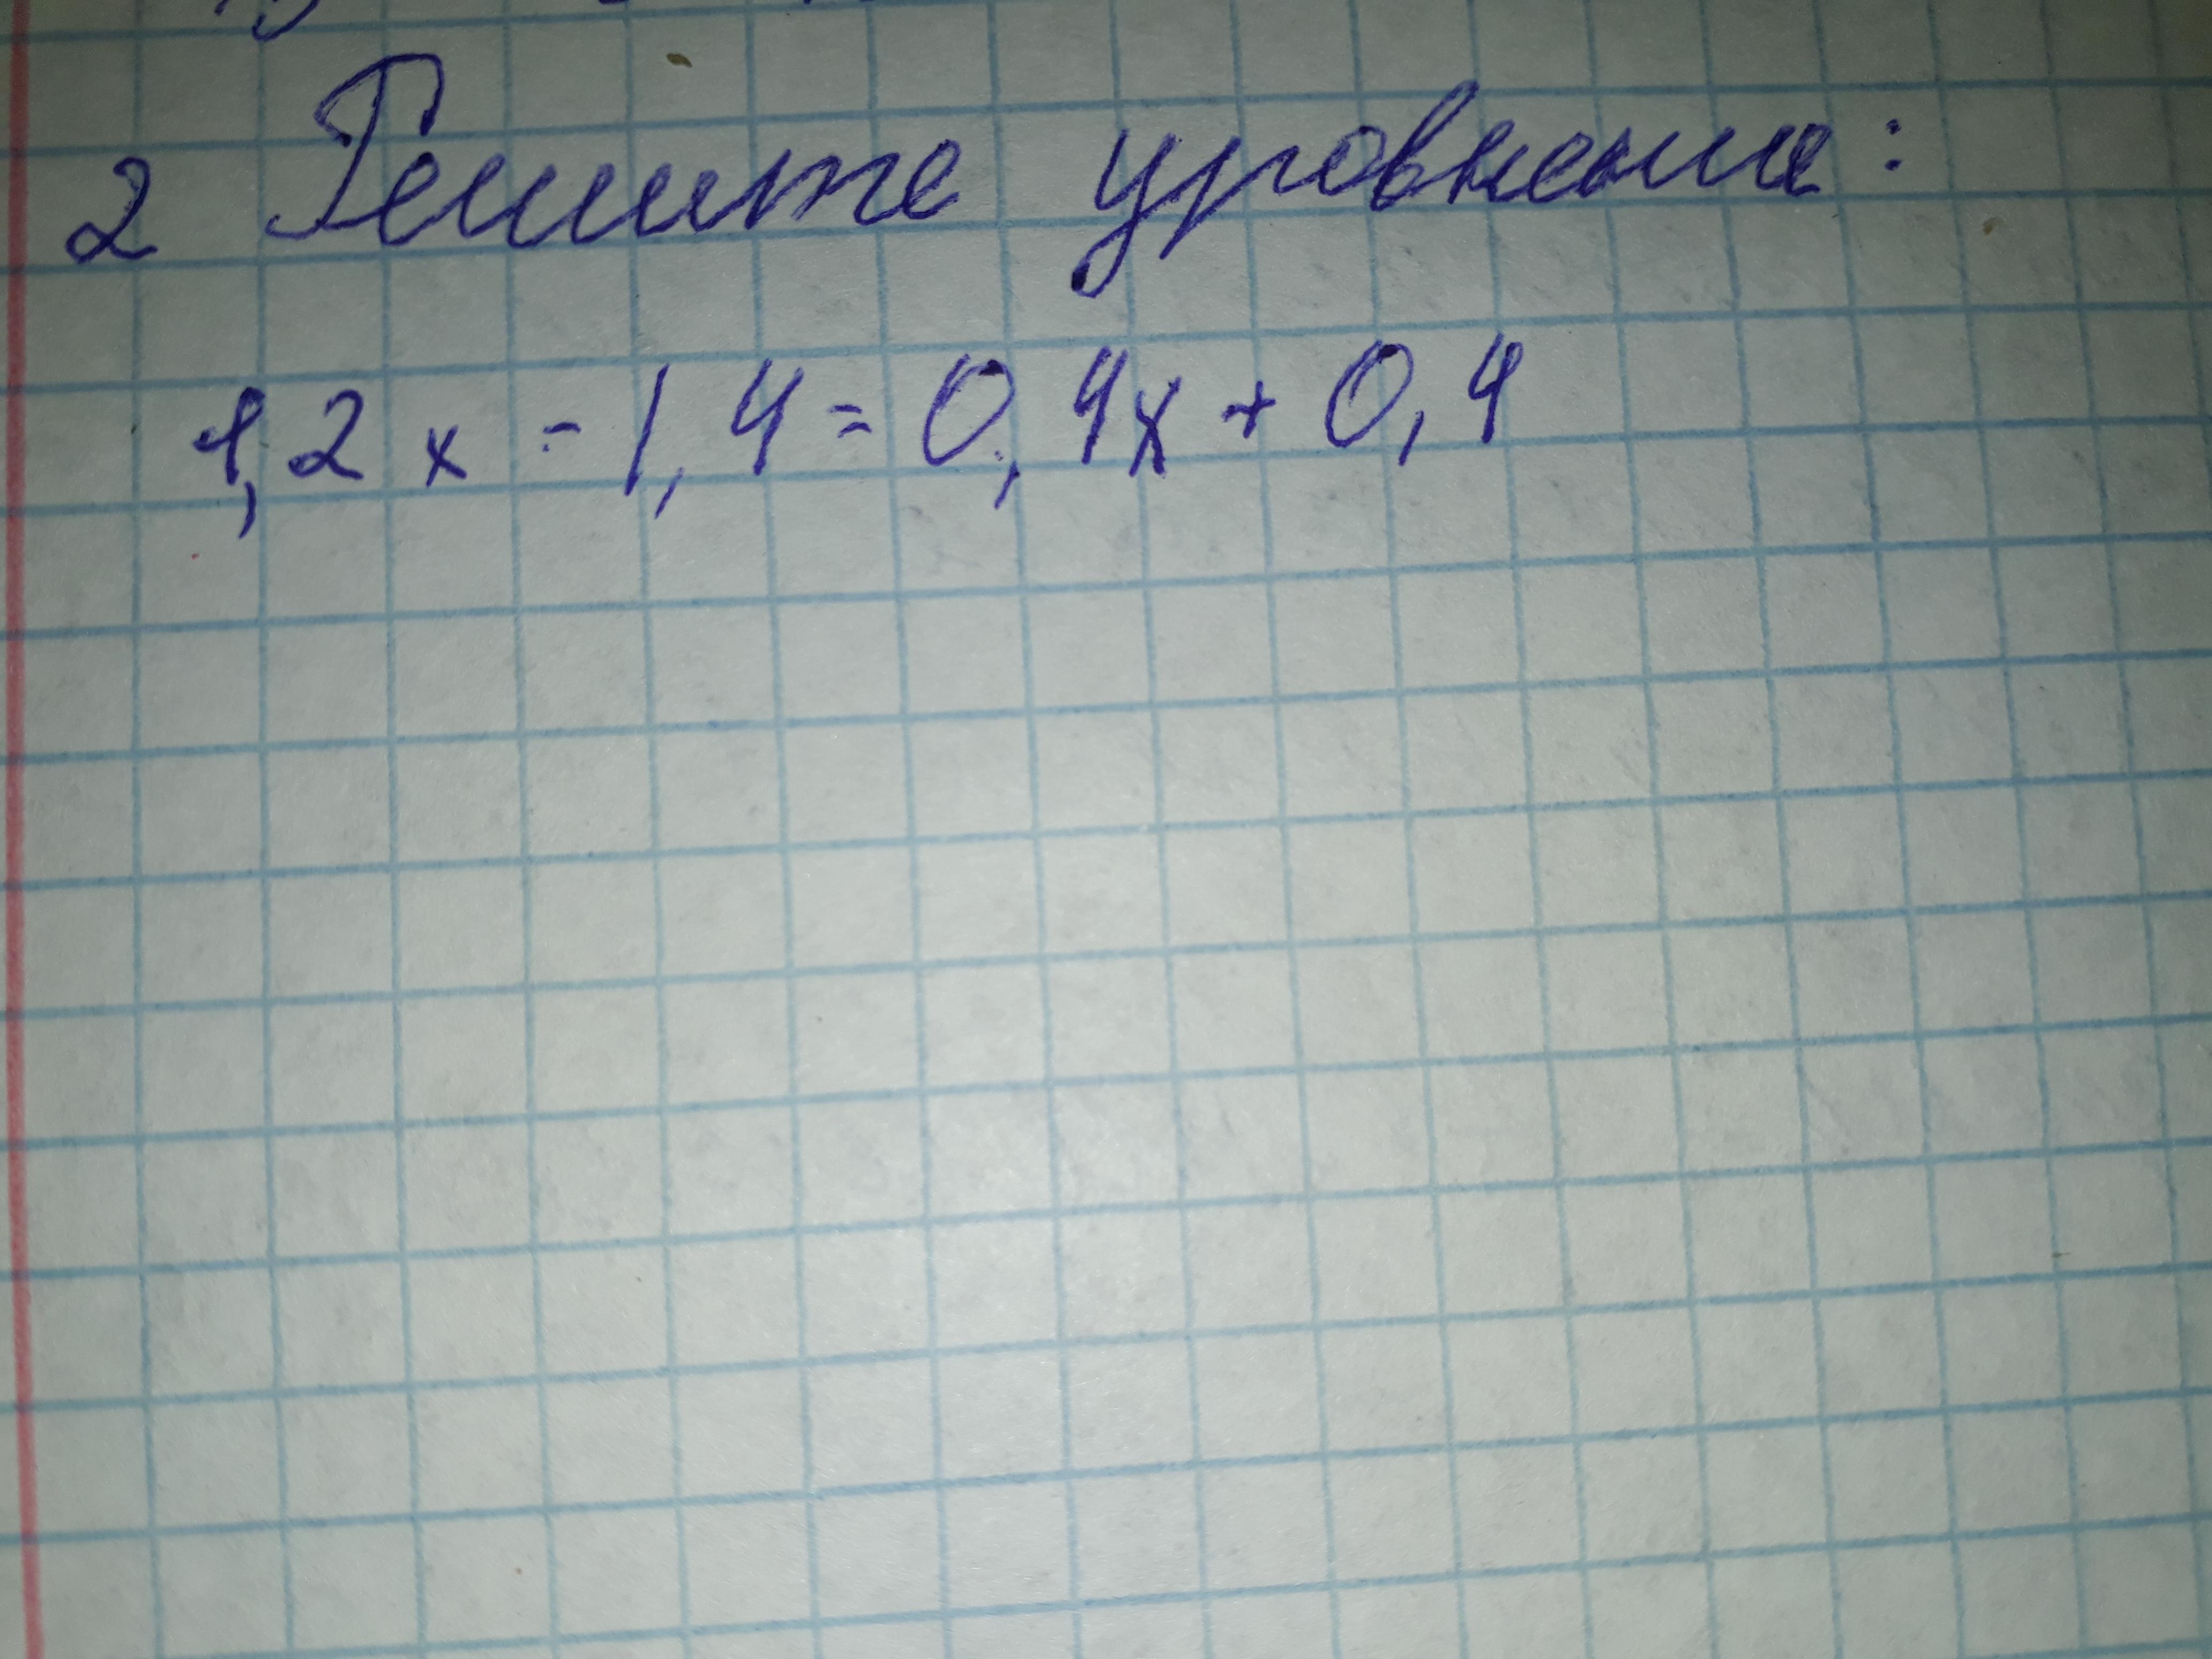 2 Решите уровнение:
1,2 x - 1,4 = 0,4x + 0,4